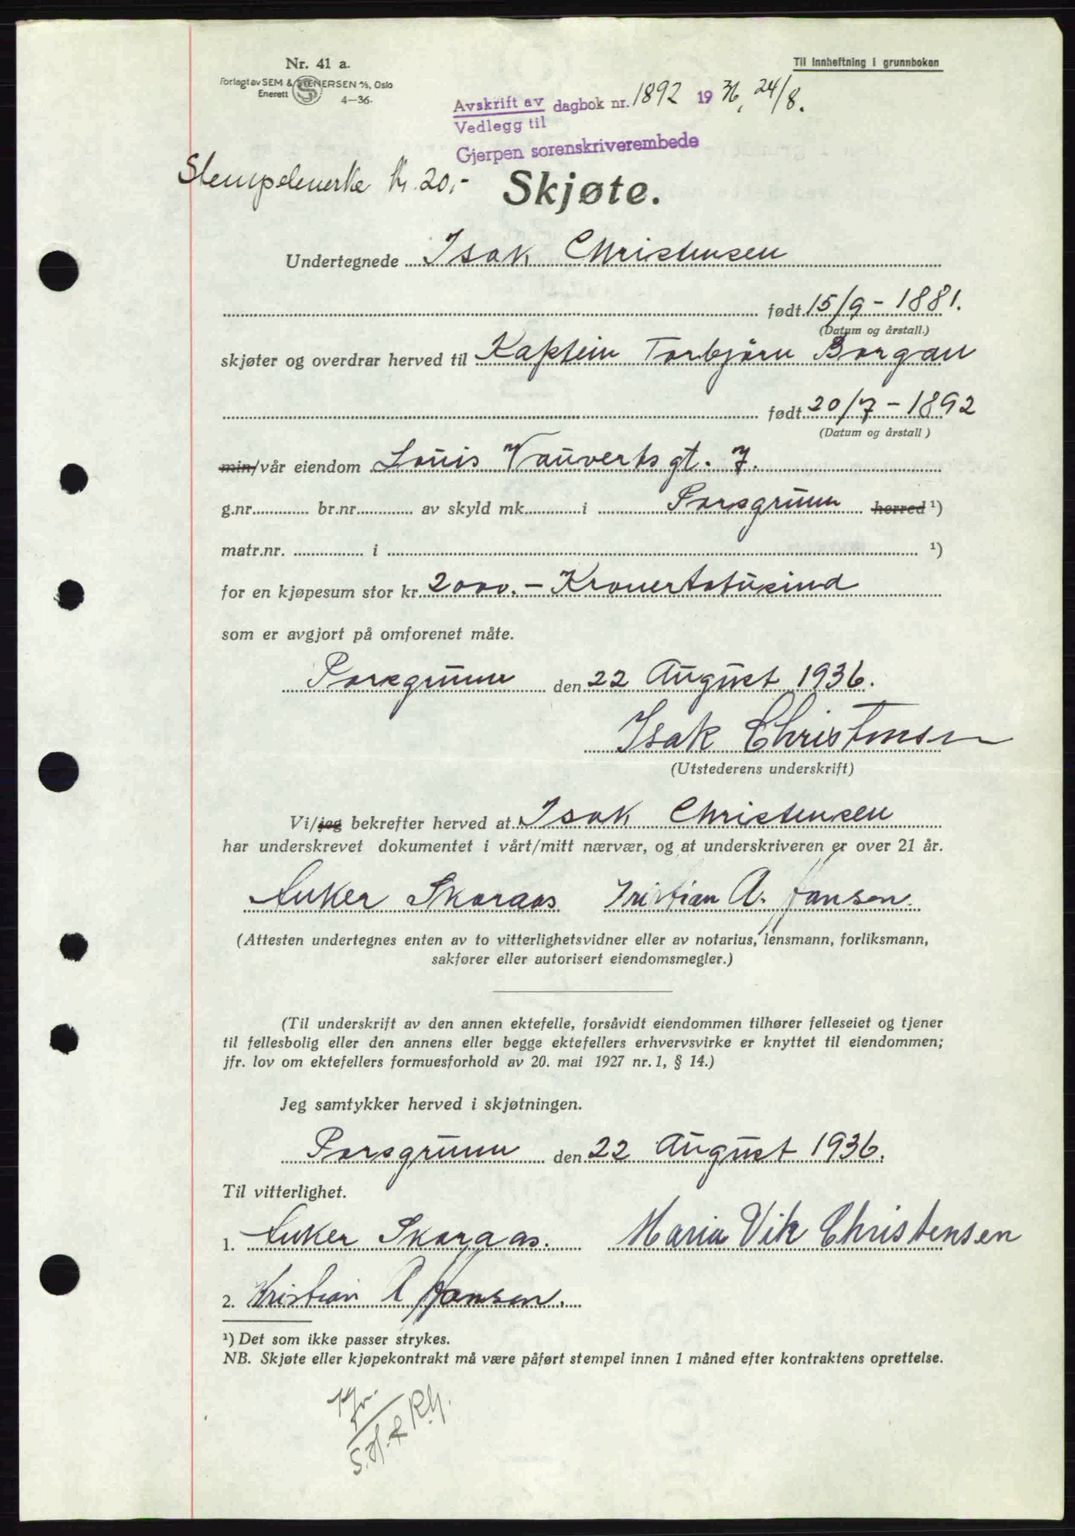 Nr. 41 a.
Forlagt av SEM & STENERSEN A/S, Oslo
Enerett 4—36.
Til innheftning i grunnboken
Avskrift av dagbok nr. 1892 1936, 24/8.
Vedlegg til
Gjerpen sorenskriverembede
Stempelmerke Kr. 20,-
Skjøte.
Undertegnede Isak Christensen
født 15/9 - 1881.
(Datum og årstall.)
skjøter og overdrar herved til Kaptein Torbjörn Borgan
født 20/7 - 1892
(Datum og årstall)
min/vår eiendom Louis Vauverts gt. 7.
g.nr. br.nr. av skyld mk. i Porsgrunn herred ¹)
matr.nr. i ¹)
for en kjøpesum stor kr. 2000.- Kronertotusind
som er avgjort på omforenet måte.
Porsgrunn den 22 August 1936.
Isak Christensen
(Utstederens underskrift)
Vi/jeg bekrefter herved at Isak Christensen
har underskrevet dokumentet i vårt/mitt nærvær, og at underskriveren er over 21 år.
Anker Skaraas Kristian A. Hansen.
(Attesten undertegnes enten av to vitterlighetsvidner eller av notarius, lensmann, forliksmann,
sakfører eller autorisert eiendomsmegler.)
(Til underskrift av den annen ektefelle, forsåvidt eiendommen tilhører felleseiet og tjener
til fellesbolig eller den annens eller begge ektefellers erhvervsvirke er knyttet til eiendommen;
jfr. lov om ektefellers formuesforhold av 20. mai 1927 nr. 1, § 14.)
Jeg samtykker herved i skjøtningen.
Porsgrunn den 22 August 1936.
Til vitterlighet.
1. Anker Skaraas. Maria Vik Christensen
2. Kristian A Hansen.
¹) Det som ikke passer strykes.
NB. Skjøte eller kjøpekontrakt må være påført stempel innen 1 måned efter kontraktens oprettelse.
S.H. & R.H.